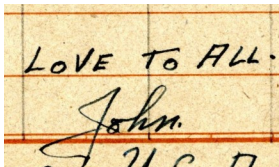 LOVE TO ALL.
John.